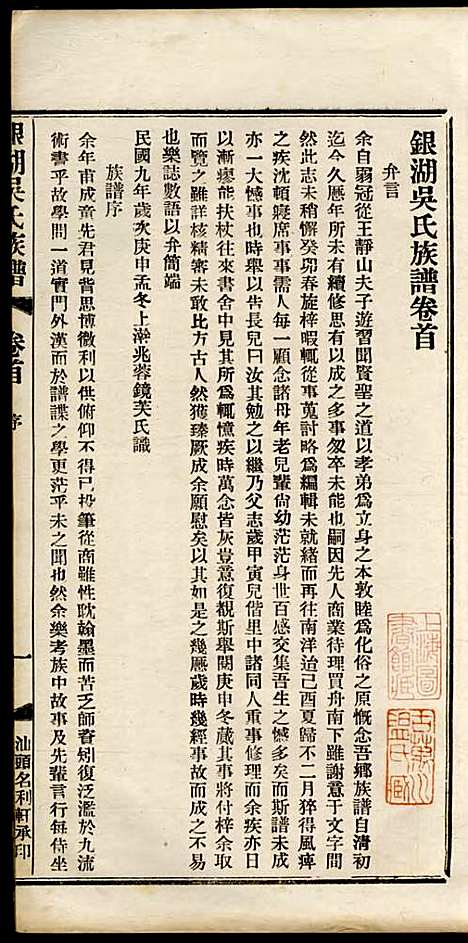 銀湖吳氏族譜卷首
弁言
余自弱冠從王靜山夫子遊習聞賢聖之道以孝弟爲立身之本敦睦爲化俗之原慨念吾鄉族譜自清初
迄今久歷年所未有續修思有以成之多事匆卒未能也嗣因先人商業待理買舟南下雖謝意于文字間
然此志未稍懈癸卯春旋梓暇輒從事蒐討略爲編輯未就緒而再往南洋治己酉夏歸不二月猝得風痺
之疾沈頓寢席事事需人每一顧念諸母年老兒輩尚幼茫茫身世百感交集吾生之憾多矣而斯譜未成
亦一大憾事也時舉以告長兒曰汝其勉之以繼乃父志歲甲寅兒偕里中諸同人重事修理而余疾亦日
以漸瘳能扶杖往來書舍中見其所爲輒憶疾時萬念皆灰豈意復覩斯舉閱庚申冬蕆其事將付梓余取
而覽之雖詳核精審未敢自以爲比方古人然獲臻厥成余願慰矣以其如是之幾歷歲時幾經事故而成之不易
也樂誌數語以弁簡端
民國九年歲次庚申孟冬上澣兆蓉鏡芙氏識
族譜序
余年甫成童先君見背思博徽利以供俯仰不得已投筆從商雖性耽翰墨而苦乏師資矧復泛濫於九流
術書乎故學問一道實門外漢而於譜諜之學更茫乎未之聞也然余樂考族中故事及先輩言行每侍坐
銀湖吳氏族譜
卷首
序
一
汕頭名利軒承印
上海圖書館藏